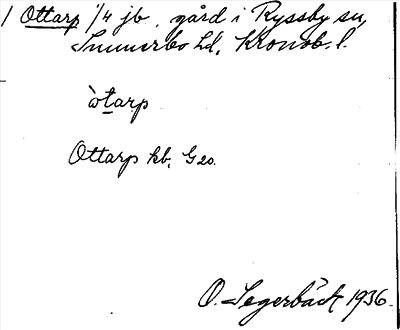 1 Ottarp 1/4 jb, gård i Ryssby sn,
Sunnerbo hd, Kronob. l.
òtarp
Ottarp kb, G20.
O. Segerbäck 1936.